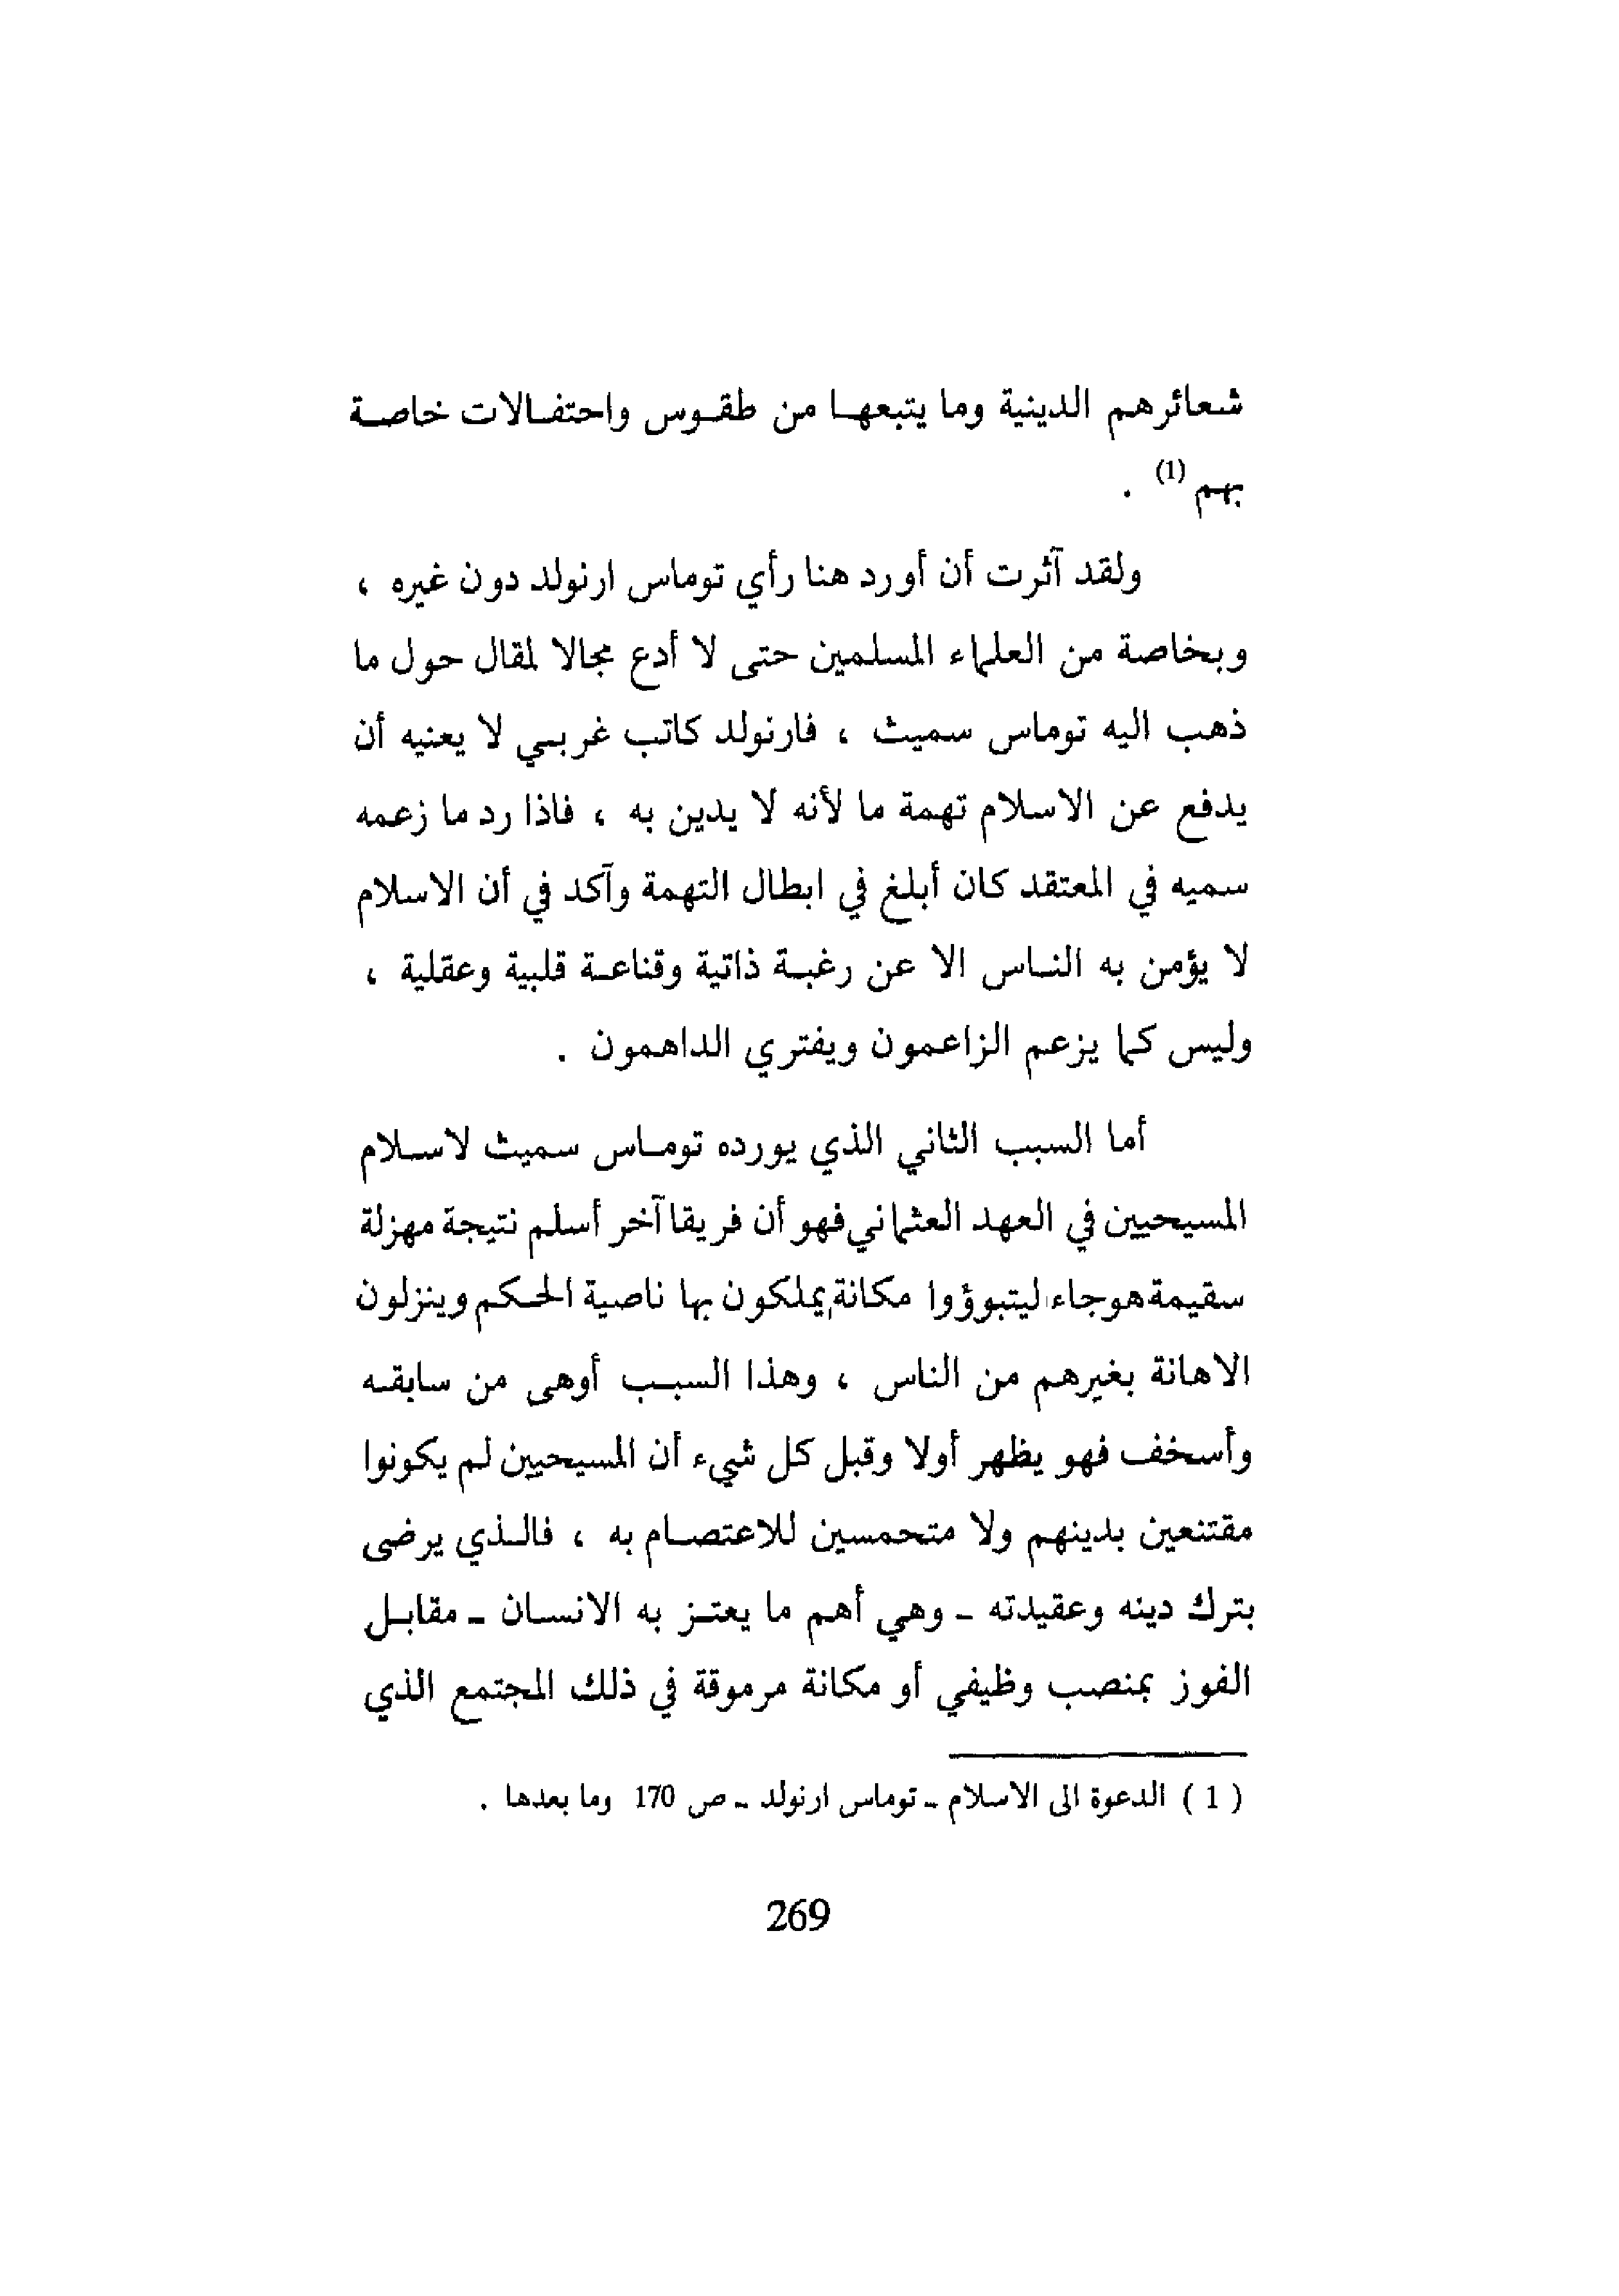 شعائرهم الدينية وما يتبعها من طقوس واحتفالات خاصة
بهم (1) .
ولقد آثرت أن أورد هنا رأي توماس ارنولد دون غيره ،
وبخاصة من العلماء المسلمين حتى لا أدع مجالا لمقال حول ما
ذهب اليه توماس سميث ، فارنولد كاتب غربي لا يعنيه أن
يدفع عن الاسلام تهمة ما لأنه لا يدين به ، فاذا رد ما زعمه
سميه في المعتقد كان أبلغ في ابطال التهمة وآكد في أن الاسلام
لا يؤمن به الناس الا عن رغبة ذاتية وقناعة قلبية وعقلية ،
وليس كما يزعم الزاعمون ويفتري الداهمون .
أما السبب الثاني الذي يورده توماس سميث لاسلام
المسيحيين في العهد العثماني فهو أن فريقا آخر أسلم نتيجة مهزلة
سقيمة هوجاء ليتبوؤوا مكانة يملكون بها ناصية الحكم وينزلون
الاهانة بغيرهم من الناس ، وهذا السبب أوهى من سابقه
وأسخف فهو يظهر أولا وقبل كل شيء أن المسيحيين لم يكونوا
مقتنعين بدينهم ولا متحمسين للاعتصام به ، فالذي يرضى
بترك دينه وعقيدته - وهي أهم ما يعتز به الانسان - مقابل
الفوز بمنصب وظيفي أو مكانة مرموقة في ذلك المجتمع الذي
( 1 ) الدعوة الى الاسلام - توماس ارنولد - ص 170 وما بعدها .
269